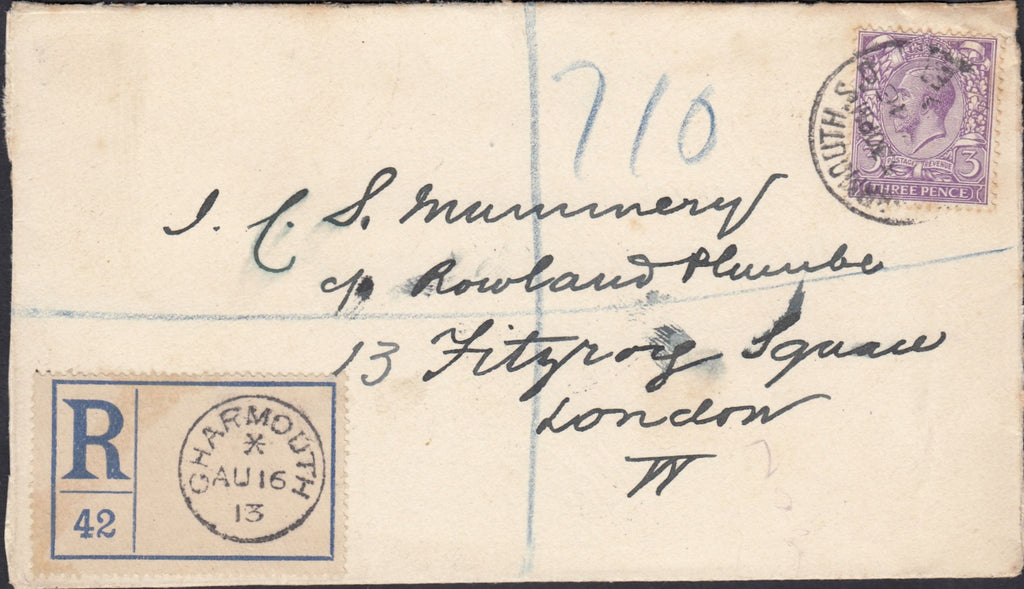 710
J. C. S. Mummery
c/o Rowland Plumbe
13 Fitzroy Square
London
W
MOUTH.S.O
3 POSTAGE REVENUE 3
THREE PENCE
R
42
CHARMOUTH
*
AU 16
13